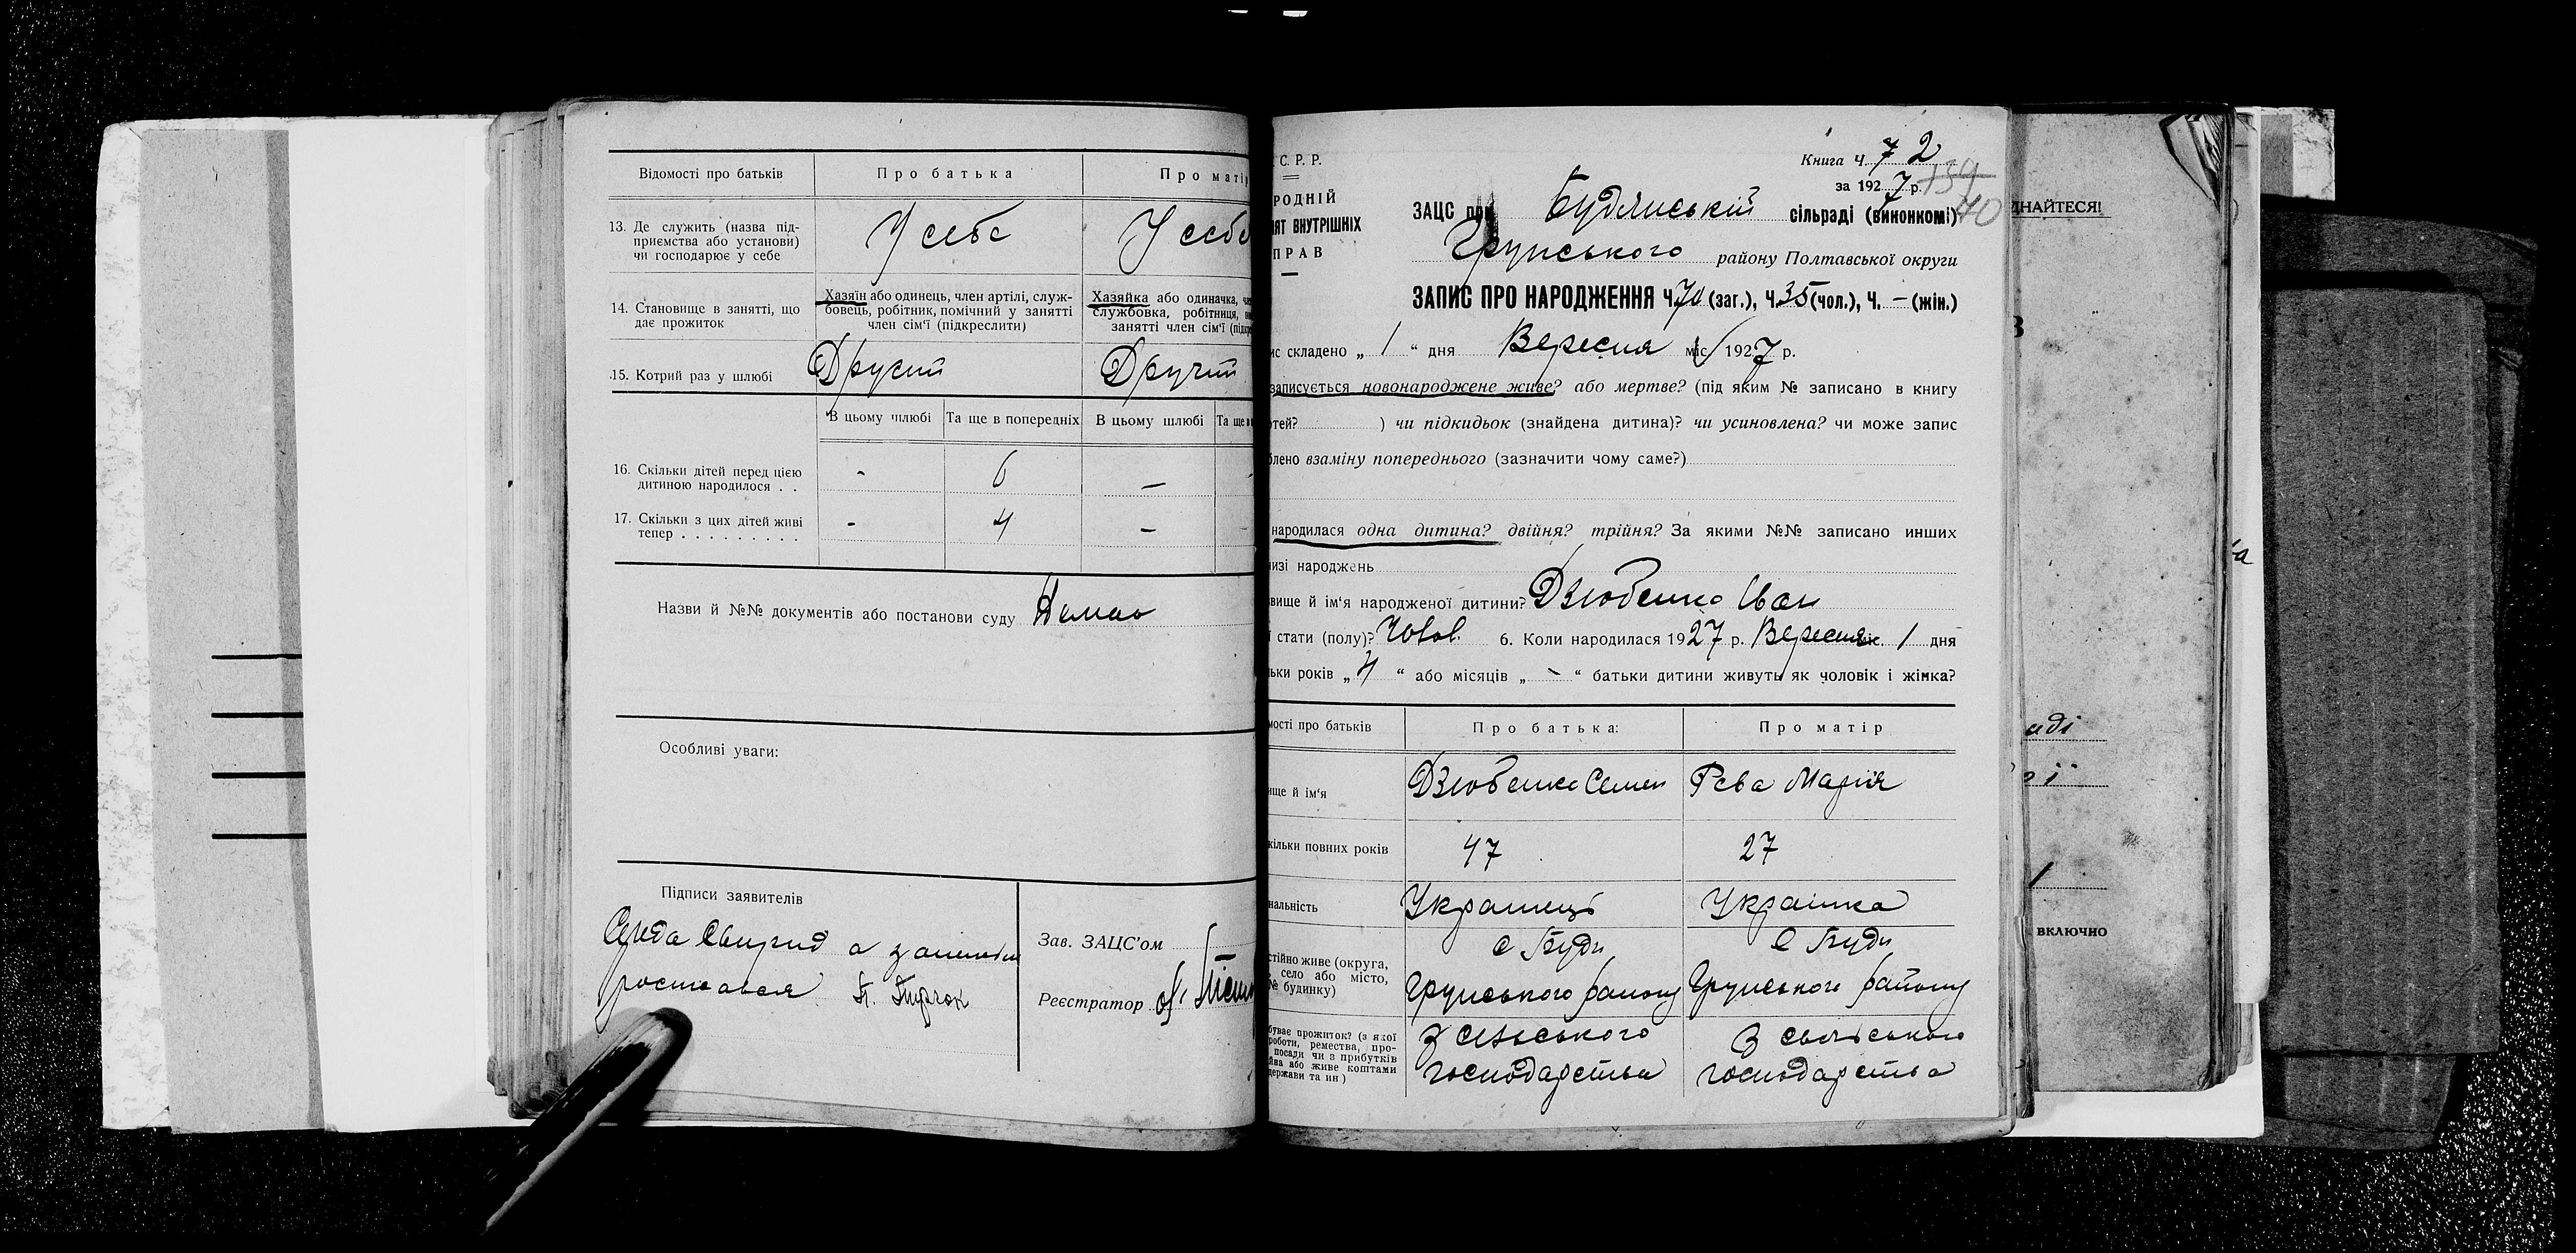 Відомості про батьків
Про батька
Про матір
13. Де служить (назва під-
приємства або установи)
чи господарює у себе
У себе
У себе
14. Становище в занятті, що
дає прожиток
Хазяїн або одинець, член артілі, служ-
бовець, робітник, помічний у занятті
член сім'ї (підкреслити)
Хазяйка або одиначка, чл
службовка, робітниця, по
занятті член сім'ї (підкре
15. Котрий раз у шлюбі
Другий
Другий
В цьому шлюбі
Та ще в попередніх
В цьому шлюбі
Та ще в
16. Скільки дітей перед цією
дитиною народилося . .
- 6 - -
17. Скільки з цих дітей живі
тепер . . . . . . . . .
- 4 -
Назви й №№ документів або постанови суду Немає
Особливі уваги:
Підписи заявителів
Середа Свирид а за
росписався П.
Зав. ЗАЦС'ом
Реєстратор
С. Р. Р.
РОДНІЙ
ЯТ ВНУТРІШНІХ
ПРАВ
Книга Ч. 72
за 1927 р.
139
40
ЗАЦС при Будлиській сільраді (винонкомі)
Грунського району Полтавської округи
ЗАПИС ПРО НАРОДЖЕННЯ Ч. 70 (заг.), Ч. 35 (чол.), Ч. – (жін.)
ис складено „ 1 “ дня Вересня міс. 1927 р.
записується новонароджене живе? або мертве? (під яким № записано в книгу
ртей? ) чи підкидьок (знайдена дитина)? чи усиновлена? чи може запис
блено взаміну попереднього (зазначити чому саме?)
народилася одна дитина? двійня? трійня? За якими №№ записано инших
низі народжень
звище й ім'я народженої дитини? Дзюбенко Іван
ї стати (полу)? Чолов. 6. Коли народилася 1927 р. Вересня міс. 1 дня
льки років „ 4 “ або місяців „ - “ батьки дитини живуть як чоловік і жінка?
мості про батьків
Про батька:
Про матір
ище й ім'я
Дзюбенко Семен
Рева Марія
кільки повних років
47
27
нальність
Українець
Українка
стійно живе (округа,
село або місто,
№ будинку)
с Буди
Грунського району
с Буди
Грунського району
буває прожиток? (з якої
роботи, ремества, про-
посади чи з прибутків
йна або живе коштами
держави та ин.)
З сільського
господарства
З сільського
господарства
ДНАЙТЕСЯ!
В
аді
ії
1
включно